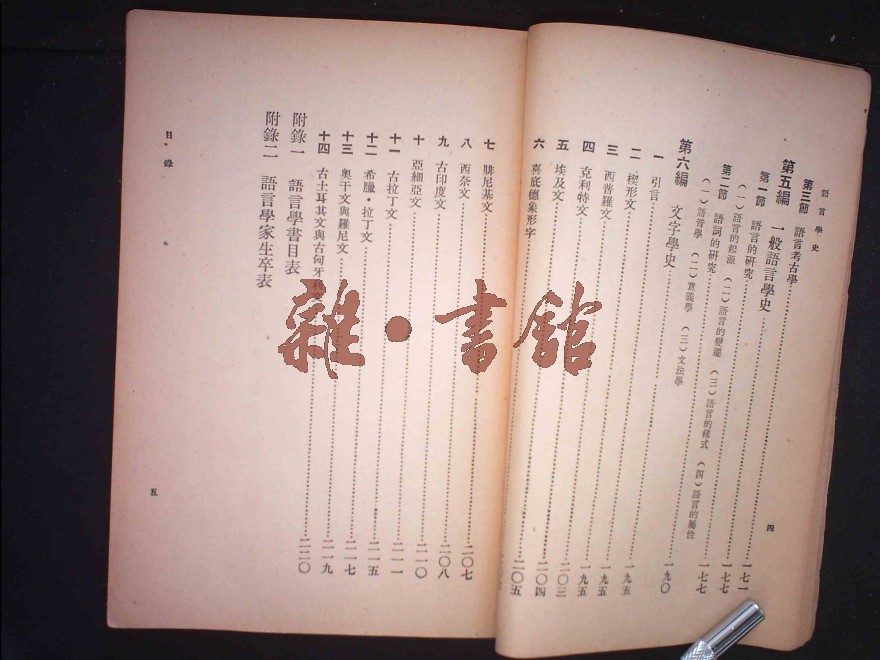 語言學史
第三節 語言考古學
第五編 一般語言學史
第一節 語言的研究 一七一
(一)語言的起源 (二)語言的變遷 (三)語言的樣式 (四)語言的屬性
第二節 語詞的研究 一七七
(一)語音學 (二)意義學 (三)文法學
第六編 文字學史 一九〇
一 引言 一九五
二 楔形文 一九五
三 西普羅文
四 克利特文
五 埃及文 二〇三
六 喜底德象形字 二〇四
四
七 腓尼基文 二〇七
八 西奈文 二〇八
九 古印度文 二一〇
十 亞細亞文 二一一
十一 古拉丁文 二一五
十二 希臘・拉丁文 二一七
十三 奧干文與羅尼文 二一九
十四 古土耳其文與古匈牙利文 二二〇
附錄一 語言學書目表
附錄二 語言學家生卒表
目錄
五
雜・書館